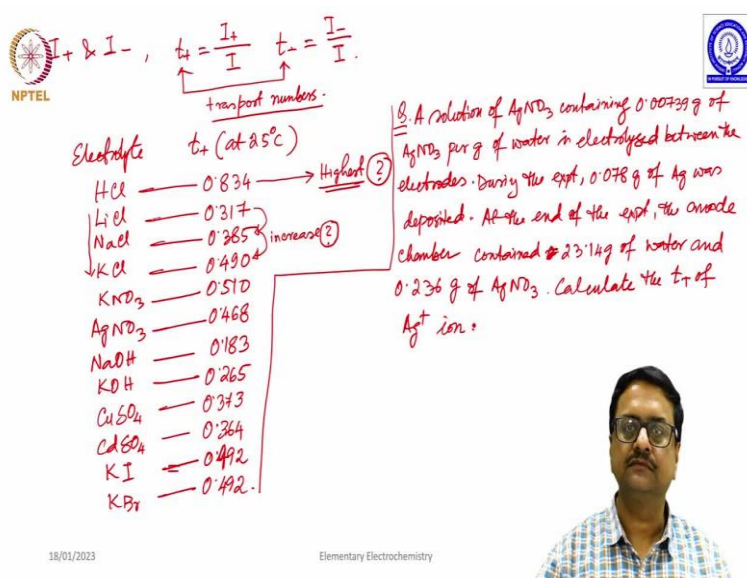 I+ & I- , t+ = I+/I t- = I-/I .
NPTEL
trasport numbers.
Electrolyte t+ (at 25°C)
HCl — 0.834 → Highest ?
LiCl — 0.317
NaCl — 0.385 increase ?
KCl — 0.490
KNO3 — 0.510
AgNO3 — 0.468
NaOH — 0.183
KOH — 0.265
CuSO4 — 0.373
CdSO4 — 0.364
KI — 0.492
KBr — 0.492.
Q. A solution of AgNO3 containing 0.00739 g of
AgNO3 per g of water is electrolysed between the
electrodes. During the expt, 0.078 g of Ag was
deposited. At the end of the expt, the anode
chamber contained 23.14g of water and
0.236 g of AgNO3. Calculate the t+ of
Ag+ ion.
18/01/2023
Elementary Electrochemistry